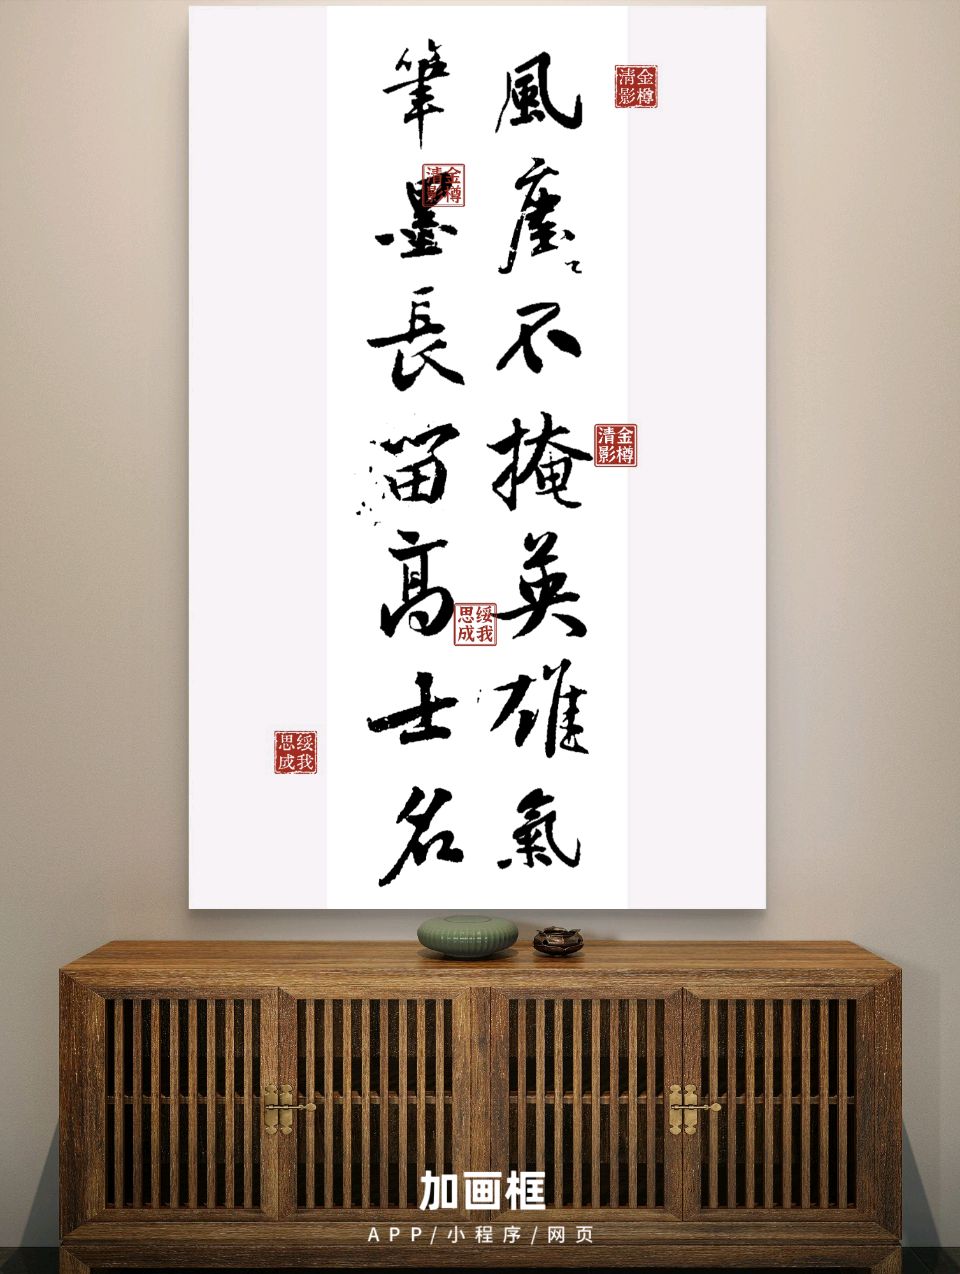 風塵不掩英雄氣
筆墨長留高士名
金樽清影
金樽清影
金樽清影
綏我思成
綏我思成
加画框
APP/小程序/网页